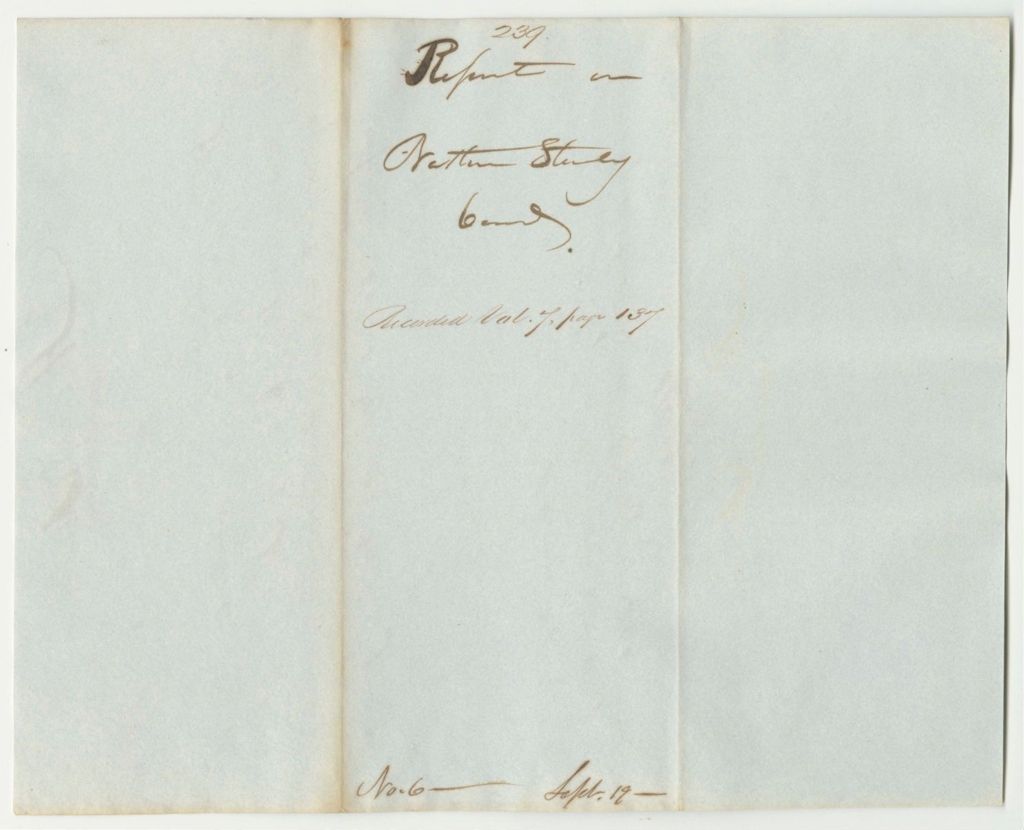 239.
Report on
Nathan Stanley
Recorded Vol. 7, page 137
No. 6 — Sept. 19 —